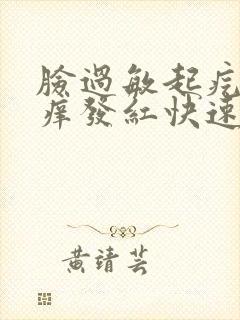 臉過敏起疙
癢發紅快速
黃靖芸